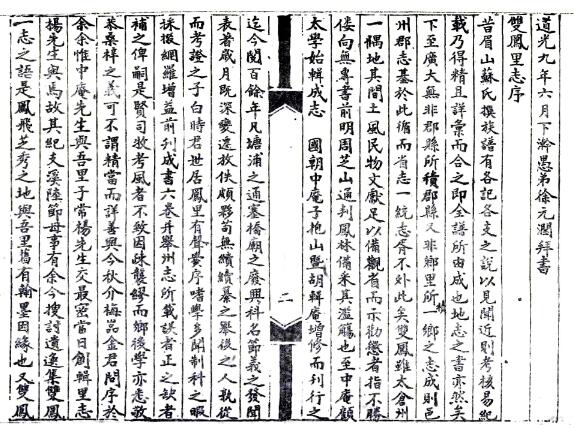 道光九年六月下瀚愚弟徐元潤拜書
雙鳳里志序
昔眉山蘇氏撰族譜有各記各支之說以見聞近則考核易紀
載乃得精且詳彙而合之即全譜所由成也地志之書亦然矣
下至廣大無非郡縣所積郡縣又非鄉里所積一鄉之志成則邑
州郡志基於此循而省志一統志胥不外此矣雙鳳雖太倉州
一隅地其間土風民物文獻足以備觀省而示勸懲者指不勝
僂向無專書前明周芝山通判鳳林備采其濫觴也至中庵顧
太學始輯成志 國朝中庵子抱山暨胡輯庵增修而刊行之
迄今閱百餘年凡塘浦之通塞橋廟之廢興科名節義之發聞
表著歲月既深變遷放佚頗夥苟無續纂之舉後之人孰從
而考證之子白時君世居鳳里有聲黌序嗜學多聞制科之暇
採掇網羅增益前刊成書六卷并舉州志所載誤者正之缺者
補之俾嗣是賢司牧考風者不致因疎襲謬而鄉後學亦悉敬
恭桑梓之義可不謂精當而詳善與今秋介梅品金君問序於
余余惟中庵先生與吾里子常楊先生交最密當日創輯里志
楊先生與焉故其紀支溪陸節母事有余今搜討遺逸集雙鳳
一志之語是鳳飛芝秀之地與吾里舊有翰墨因緣也又雙鳳
二